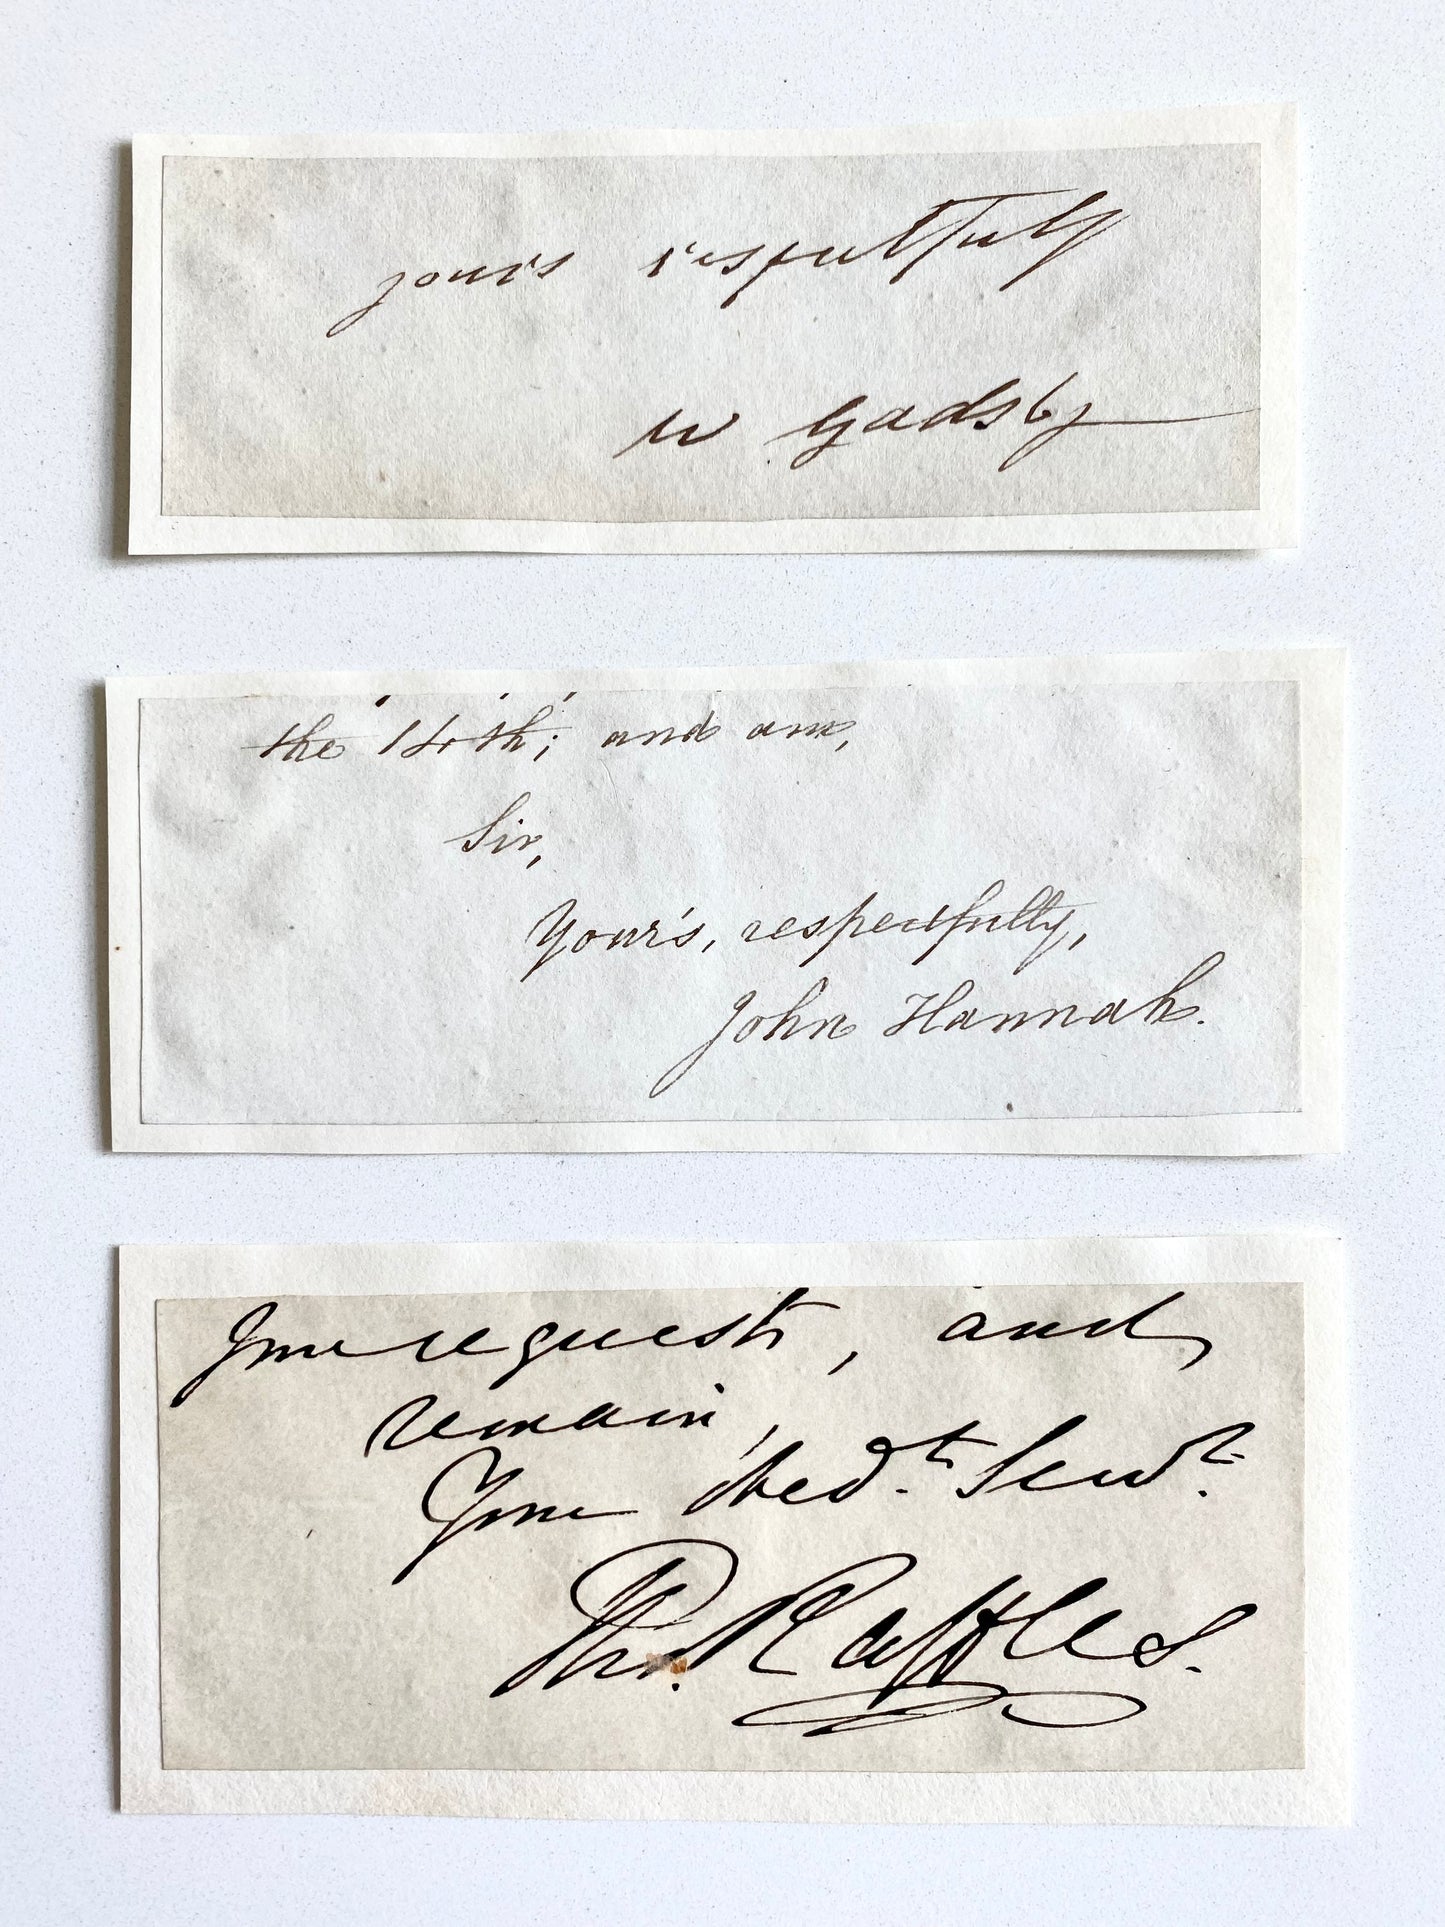 yours respectfully
W Gadsby
the 14th; and am,
Sir,
Your's, respectfully,
John Hannah.
Your request, and
remain,
Your Obedt. Servt.
Thos. Raffles.